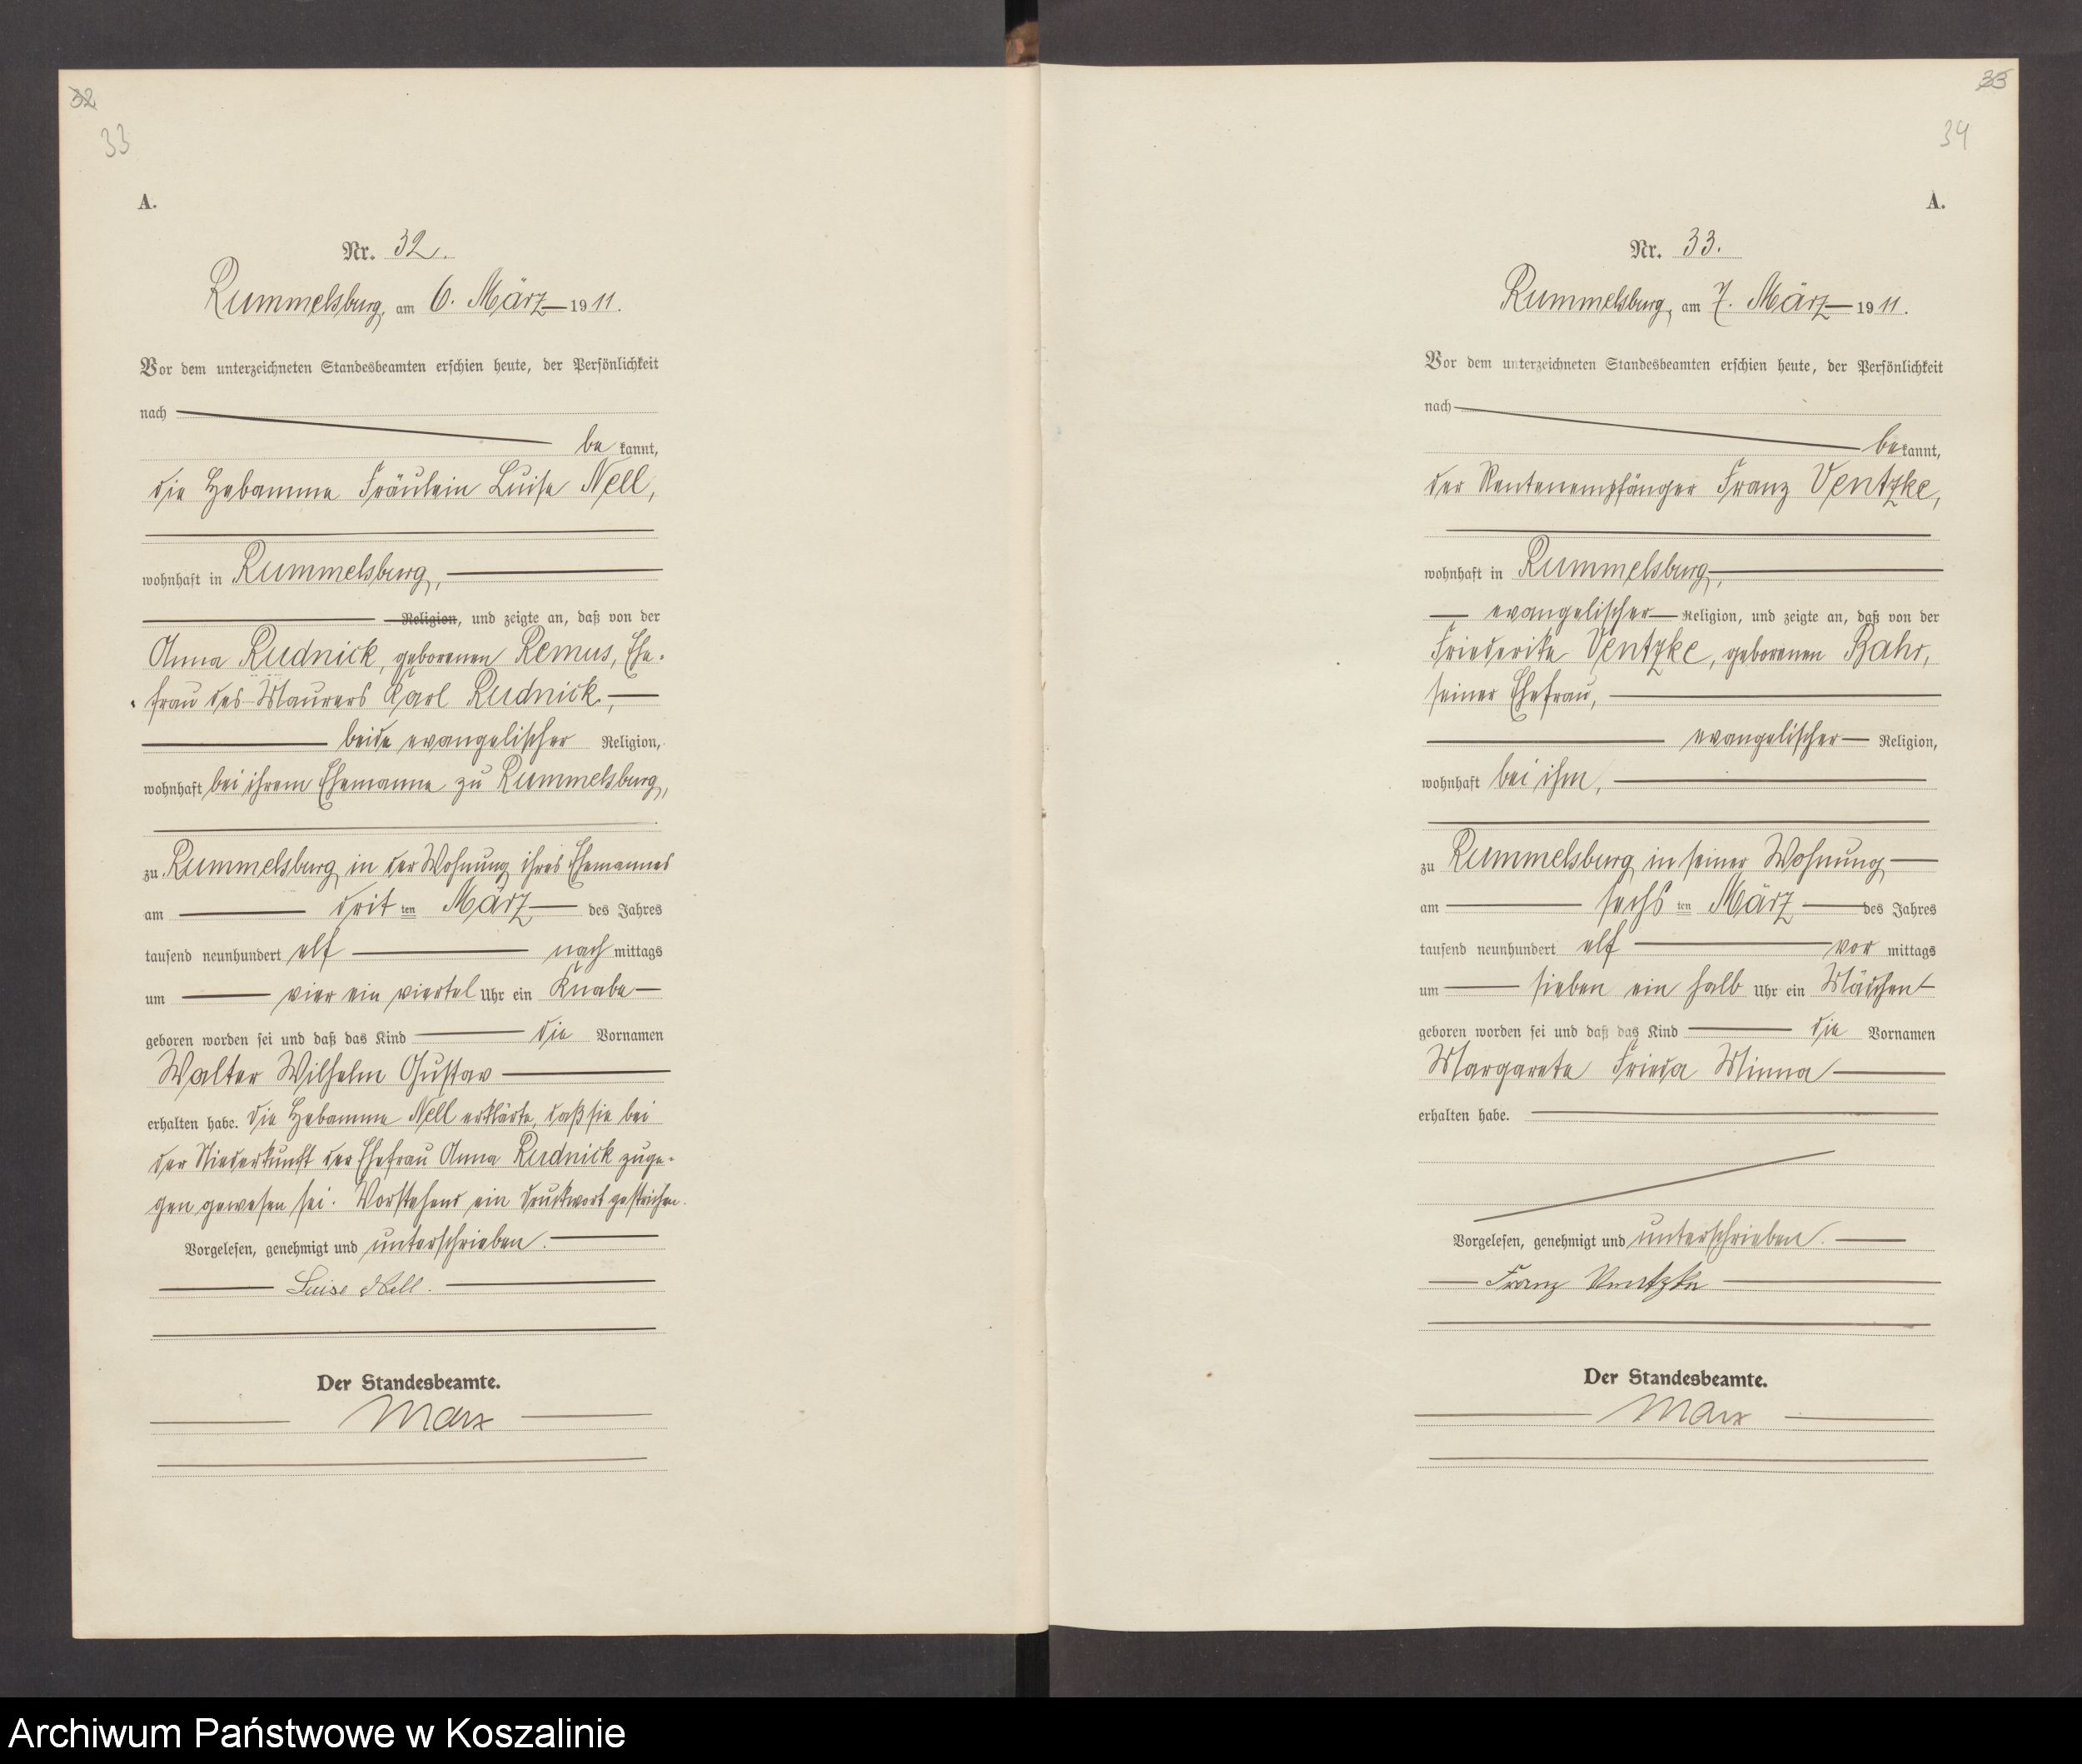 32
33
A.
Nr. 32.
Rummelsburg, am 6. März 1911.
Vor dem unterzeichneten Standesbeamten erschien heute, der Persönlichkeit
nach
bekannt,
die Hebamme Fräulein Luise Nell,
wohnhaft in Rummelsburg,
Religion, und zeigte an, daß von der
Anna Rudnick, geborenen Remus, Ehe-
frau des Maurers Karl Rudnick,
beide evangelischer Religion,
wohnhaft bei ihrem Ehemanne zu Rummelsburg,
zu Rummelsburg in der Wohnung ihres Ehemannes
am dritten März des Jahres
tausend neunhundert elf nachmittags
um vier ein viertel Uhr ein Knabe
geboren worden sei und daß das Kind die Vornamen
Walter Wilhelm Gustav
erhalten habe. Die Hebamme Nell erklärte, daß sie bei
der Niederkunft der Ehefrau Anna Rudnick zuge-
gen gewesen sei. Vorstehend ein Druckwort gestrichen.
Vorgelesen, genehmigt und unterschrieben.
Luise Nell.
Der Standesbeamte.
Marx
33
34
A.
Nr. 33.
Rummelsburg, am 7. März 1911.
Vor dem unterzeichneten Standesbeamten erschien heute, der Persönlichkeit
nach
bekannt,
der Rentenempfänger Franz Ventzke,
wohnhaft in Rummelsburg,
evangelischer Religion, und zeigte an, daß von der
Friederike Ventzke, geborenen Bahr,
seiner Ehefrau,
evangelischer Religion,
wohnhaft bei ihm,
zu Rummelsburg in seiner Wohnung
am sechsten März des Jahres
tausend neunhundert elf vormittags
um sieben ein halb Uhr ein Mädchen
geboren worden sei und daß das Kind die Vornamen
Margarete Frieda Minna
erhalten habe.
Vorgelesen, genehmigt und unterschrieben.
Franz Ventzke
Der Standesbeamte.
Marx
Archiwum Państwowe w Koszalinie